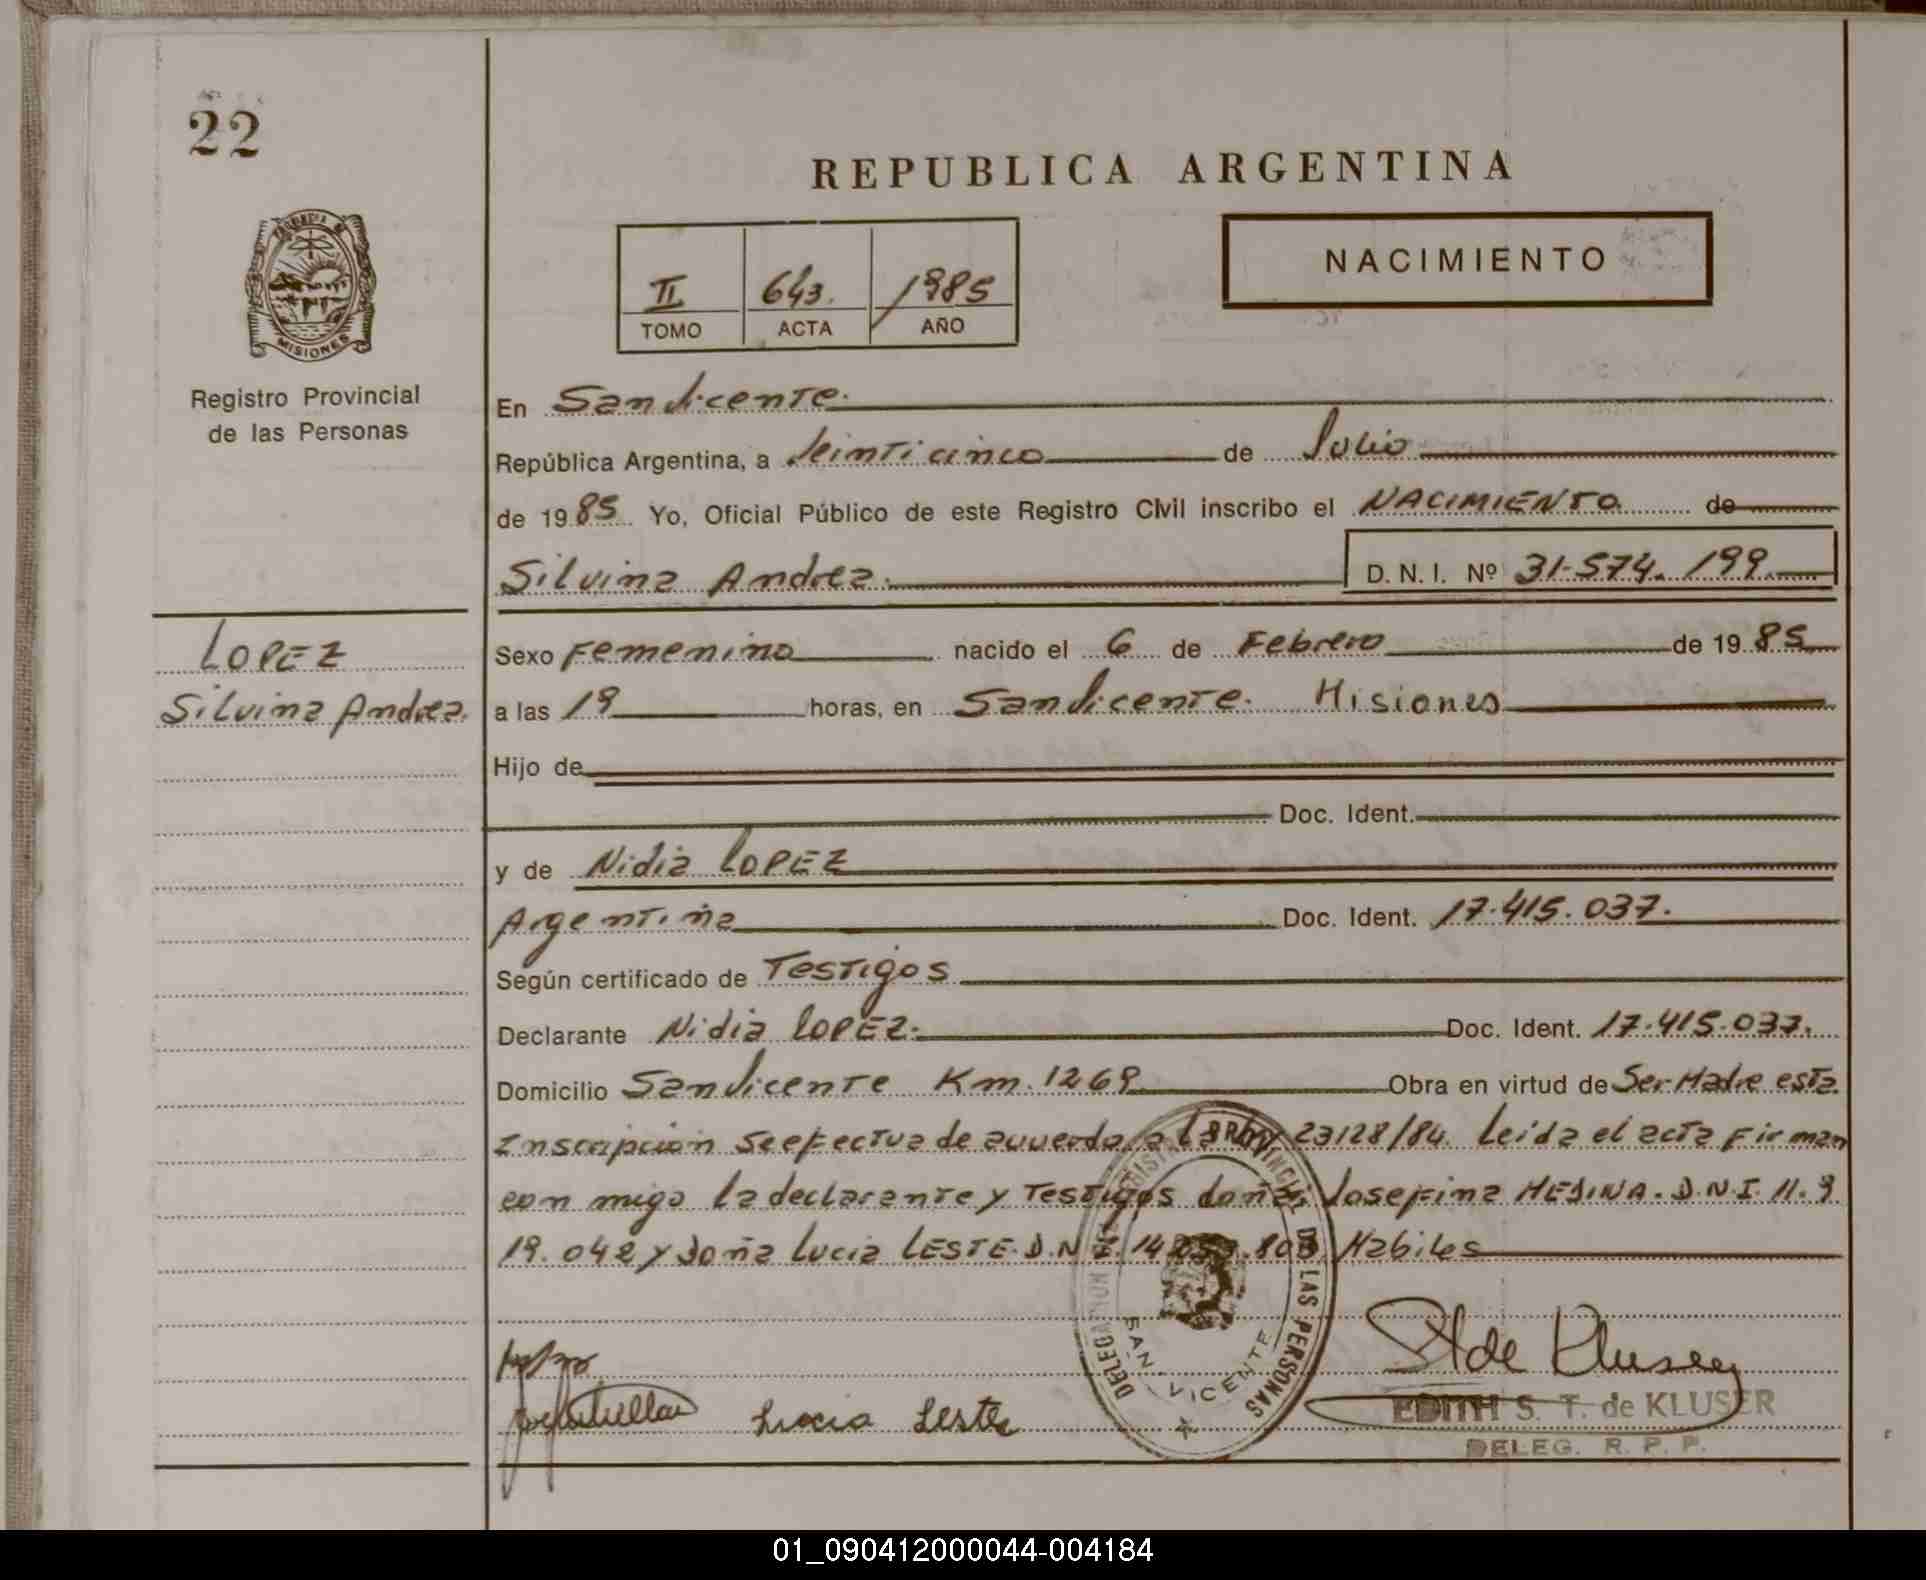 22
REPUBLICA ARGENTINA
NACIMIENTO
II 643. 1985
TOMO ACTA AÑO
PROVINCIA DE MISIONES
Registro Provincial
de las Personas
En San Vicente.
República Argentina, a Veinti cinco de Julio
de 1985 Yo, Oficial Público de este Registro Civil inscribo el NACIMIENTO de
Silvina Andrea. D. N. I. Nº 31.574.199.
LOPEZ
Silvina Andrea.
Sexo Femenino nacido el 6 de Febrero de 1985
a las 19 horas, en San Vicente. Misiones
Hijo de
Doc. Ident.
y de Nidia LOPEZ
Argentina Doc. Ident. 17.415.037.
Según certificado de Testigos
Declarante Nidia LOPEZ. Doc. Ident. 17.415.037.
Domicilio San Vicente Km. 1269 Obra en virtud de Ser Madre esta
Inscripcion se efectua de acuerdo a la Ley 23128/84. Leida el acta Firman
con migo la declarante y Testigos doña Josefina MEDINA. D.N.I. 11.9
19.042 y Doña Lucia LESTE. D.N.I. 14. Habiles
DELEGACION DEL REGISTRO PROVINCIAL DE LAS PERSONAS
SAN VICENTE
Lucia Leste
de Kluser
EDITH S. T. de KLUSER
DELEG. R. P. P.
01_090412000044-004184